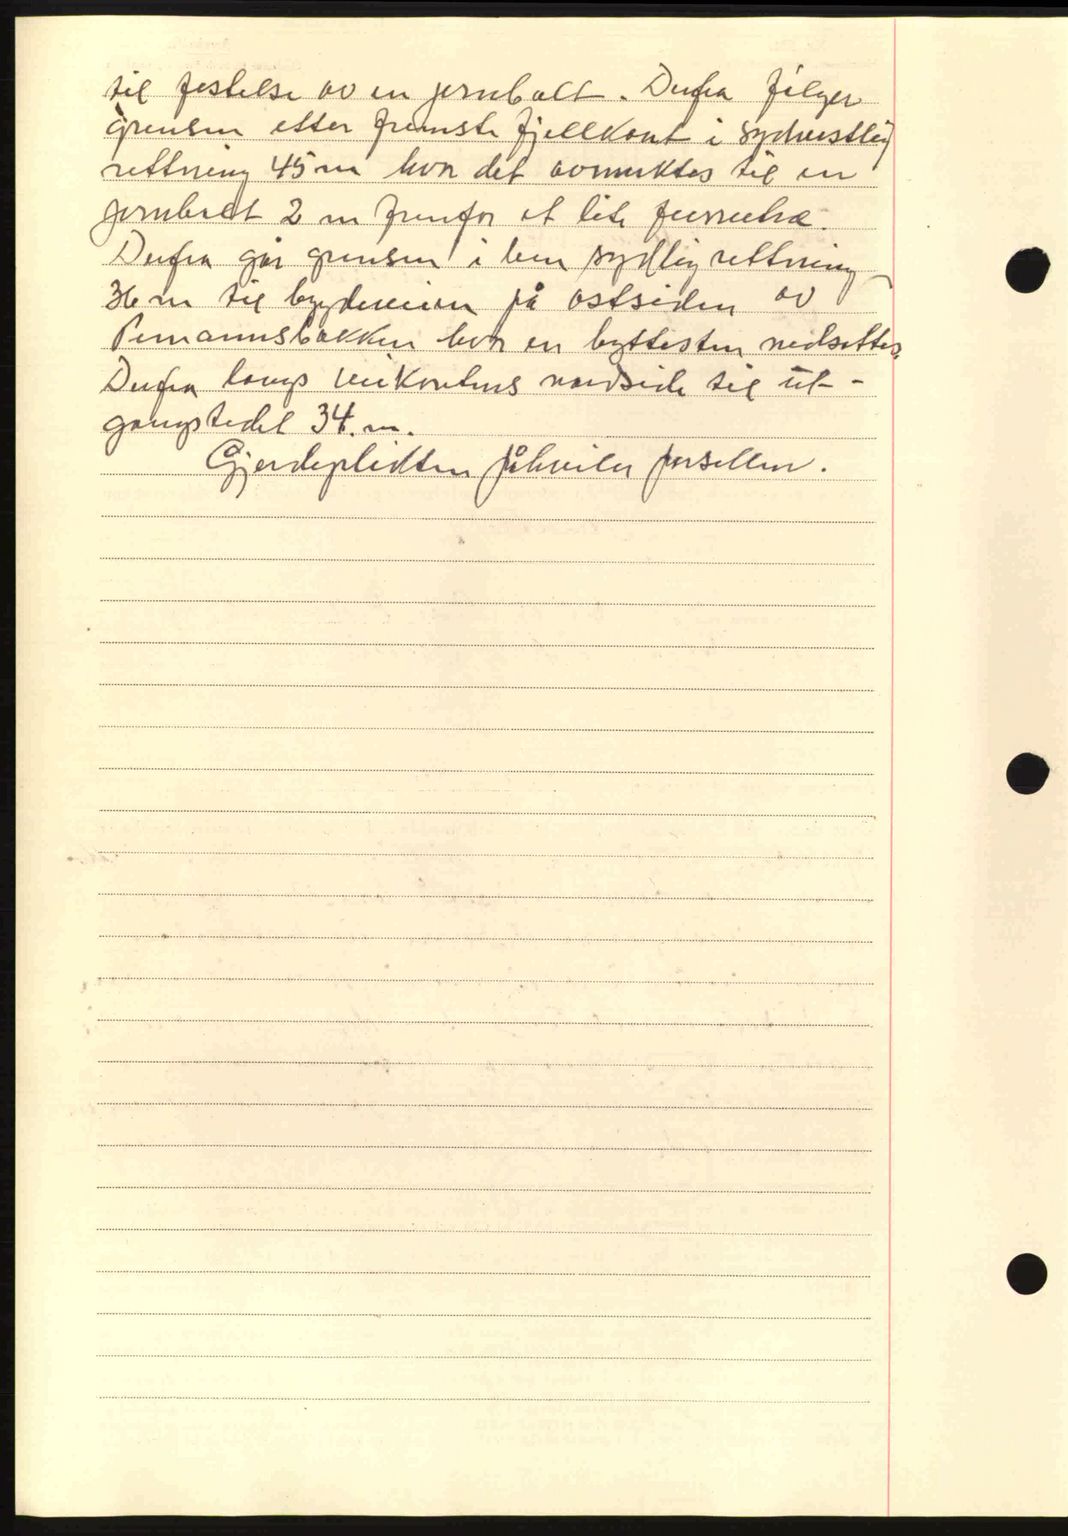 til festelse av en jernbolt. Derfra følger
grensen etter fremste fjellkant i sydvestlig
rettning 45 m hvor det avmerktes til en
jernbolt 2 m frenfor et lite furrutræ.
Derfra går grensen i ben sydlig rettning
36 m til bygdeveien på østsiden av
Permannsbakken hvor en byttesten nedsettes.
Derfra langs veikantens nordside til ut-
gangstedet 34. m.
Gjerdeplikten påhviler parsellen.